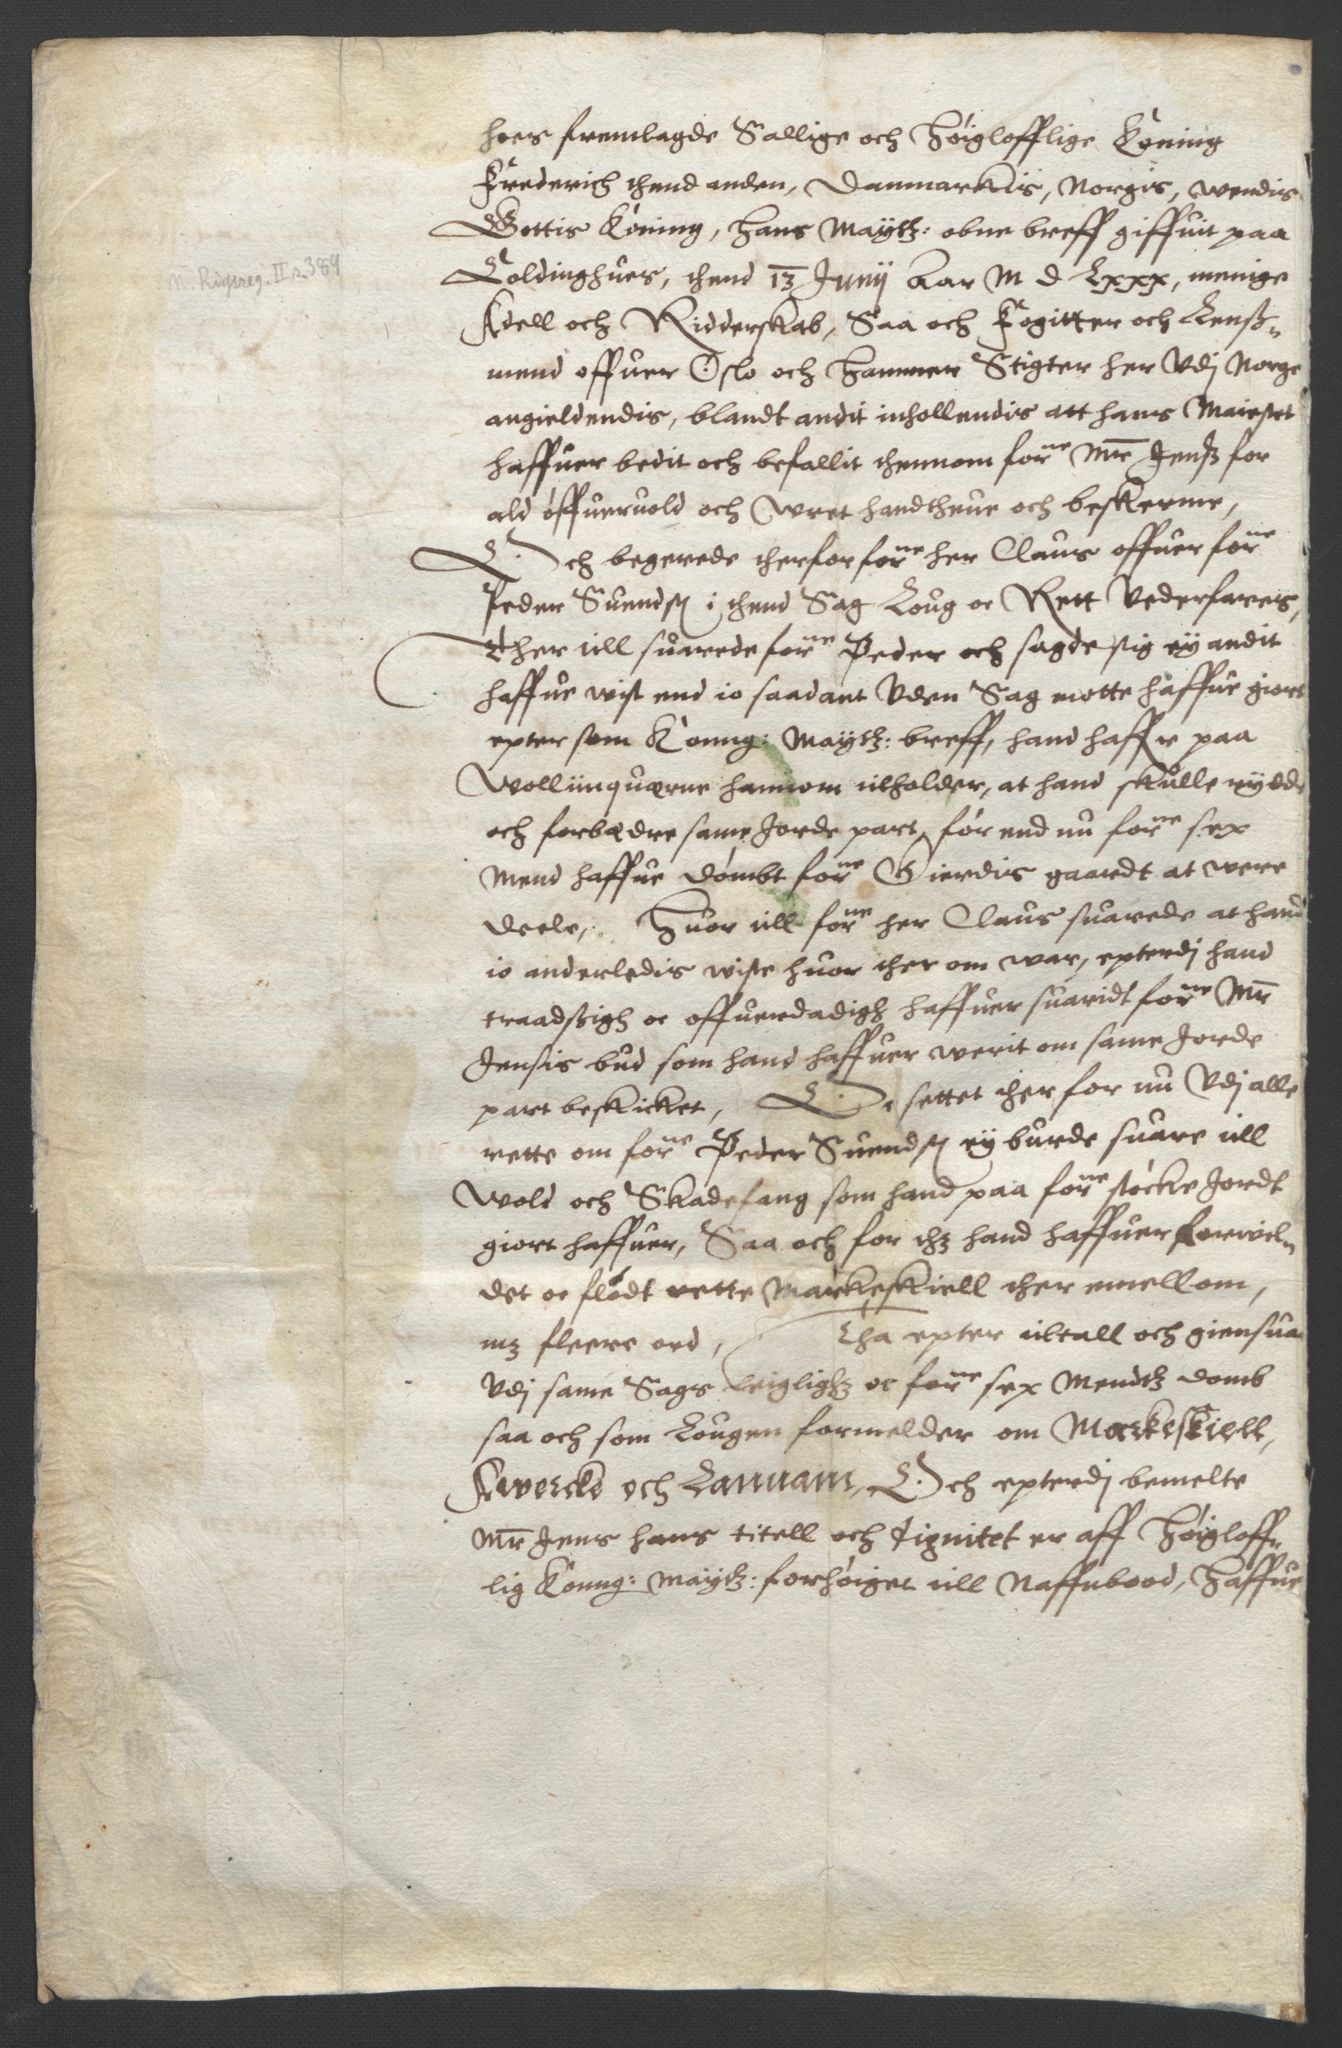 hoes fremlagde Sallige och Høiglofflige Koning
Frederich thend anden, Danmarkis, Norgis, wendis
Gottis Koning, Hans Maytz: obne breff giffuit paa
Coldinghues, thend 13 Junij Aar M d Lxxx, menige
Adell och Ridderskab, Saa och Fogitter och Lenß-
mend offuer Oslo och Hammer Stigter her Vdj Norge
angieldendis, blandt andit inhollendis att hans Maiestet
haffuer bedit och befallit thennom forne Mr Jenß for
ald offueruold och Wret handtheue och beskerme,
Och begerede therfor forne her Claus offuer forne
Peder Suendsß i thend Sag Loug oc Rett Vederfares,
Ther till suarede forne Peder och sagde sig ey andit
haffue wist end io saadant Vden Sag motte haffue giort
epter som Konng: Maytz: breff, hand haffr paa
Wolliinquærne hannom tilholder, at hand skulle rydde
och forbædre same Jorde part, før end nu forne sex
Mend haffue dømbt forne Gierdis gaardt at were
deele, Huor till forne her Claus suarede at hand
io anderledis wiste huor ther om war, epterdj hand
traadzigh oc offuerdadigh haffuer suaridt forne Mr
Jensis bud som hand haffuer werit om same Jorde
part beskicket, Oc settet ther for nu Vdj alle
rette om forne Peder Suendsß ey burde suare till
Wold och Skadefang som hand paa forne støcke Jordt
giort haffuer, Saa och for thz hand haffuer forvel-
det oc flødt rette Markeskiell ther emellom,
mz fleere ord, Tha epter tiltall och giensuar
Vdj same Sags leiglighz oc forne sex Mendtz domb
saa och som Lougen formelder om Markeskiell,
Awercke och Lannam, Och epterdj bemelte
Mr Jens hans titell och dignitet er aff Høigloff-
lig Konng: Maytz: forhøiget till Naffnbood, Haffue
M. Rigsreg. II s. 389